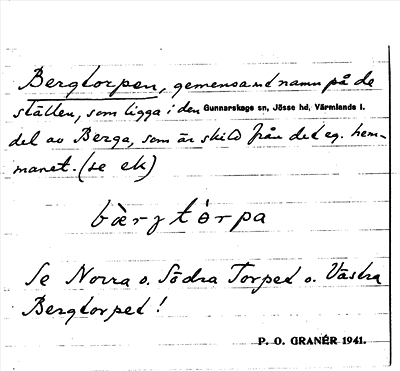 Bergtorpen, gemensamt namn på de
ställen, som ligga i den Gunnarskogs sn, Jösse hd, Värmlands l.
del av Berga, som är skild från det eg. hem-
manet. (se ek)
bærjtɷrpa
Se Norra o. Södra Torpet o. Västra
Bergtorpet!
P. O. GRANÉR 1941.